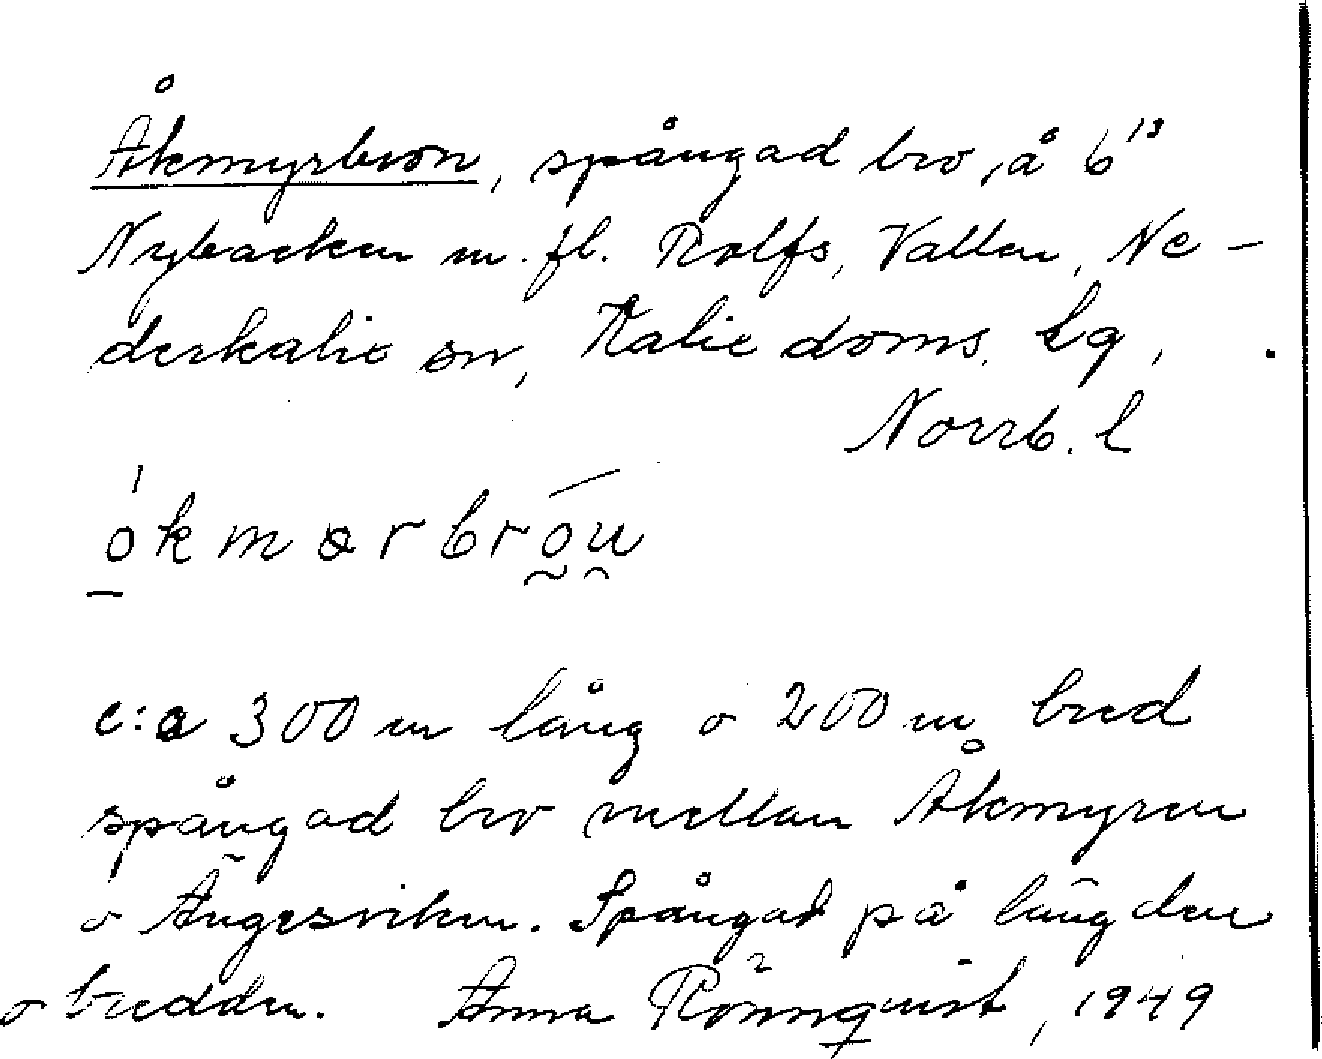 Åkmyrbron, spångad bro, å 6¹³
Nybacken m. fl. Rolfs, Vallen, Ne-
derkalix sn, Kalix doms. lg,
Norrb. l
ókmørbróu
c:a 300 m lång o 200 m bred
spångad bro mellan Åkmyren
o Ängesviken. Spångad på längden
o bredden. Anna Rönnquist, 1949